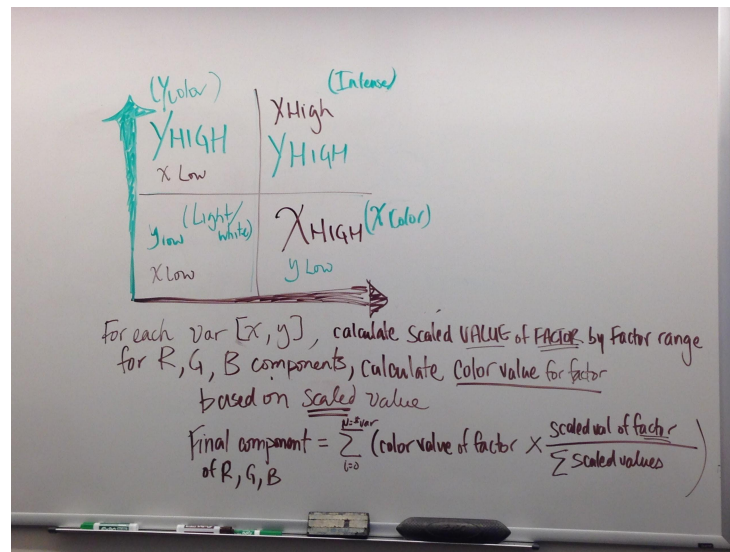 (Ycolor)
(Intense)
YHIGH
X Low
XHigh
YHIGH
ylow (Light/
White)
X Low
XHIGH (X Color)
y Low
For each var [x, y], calculate scaled VALUE of FACTOR by Factor range
for R, G, B components, calculate color value for factor
based on scaled value
Final component = N=#var ∑ i=0 (color value of factor X scaled val of factor / ∑ scaled values)
of R, G, B